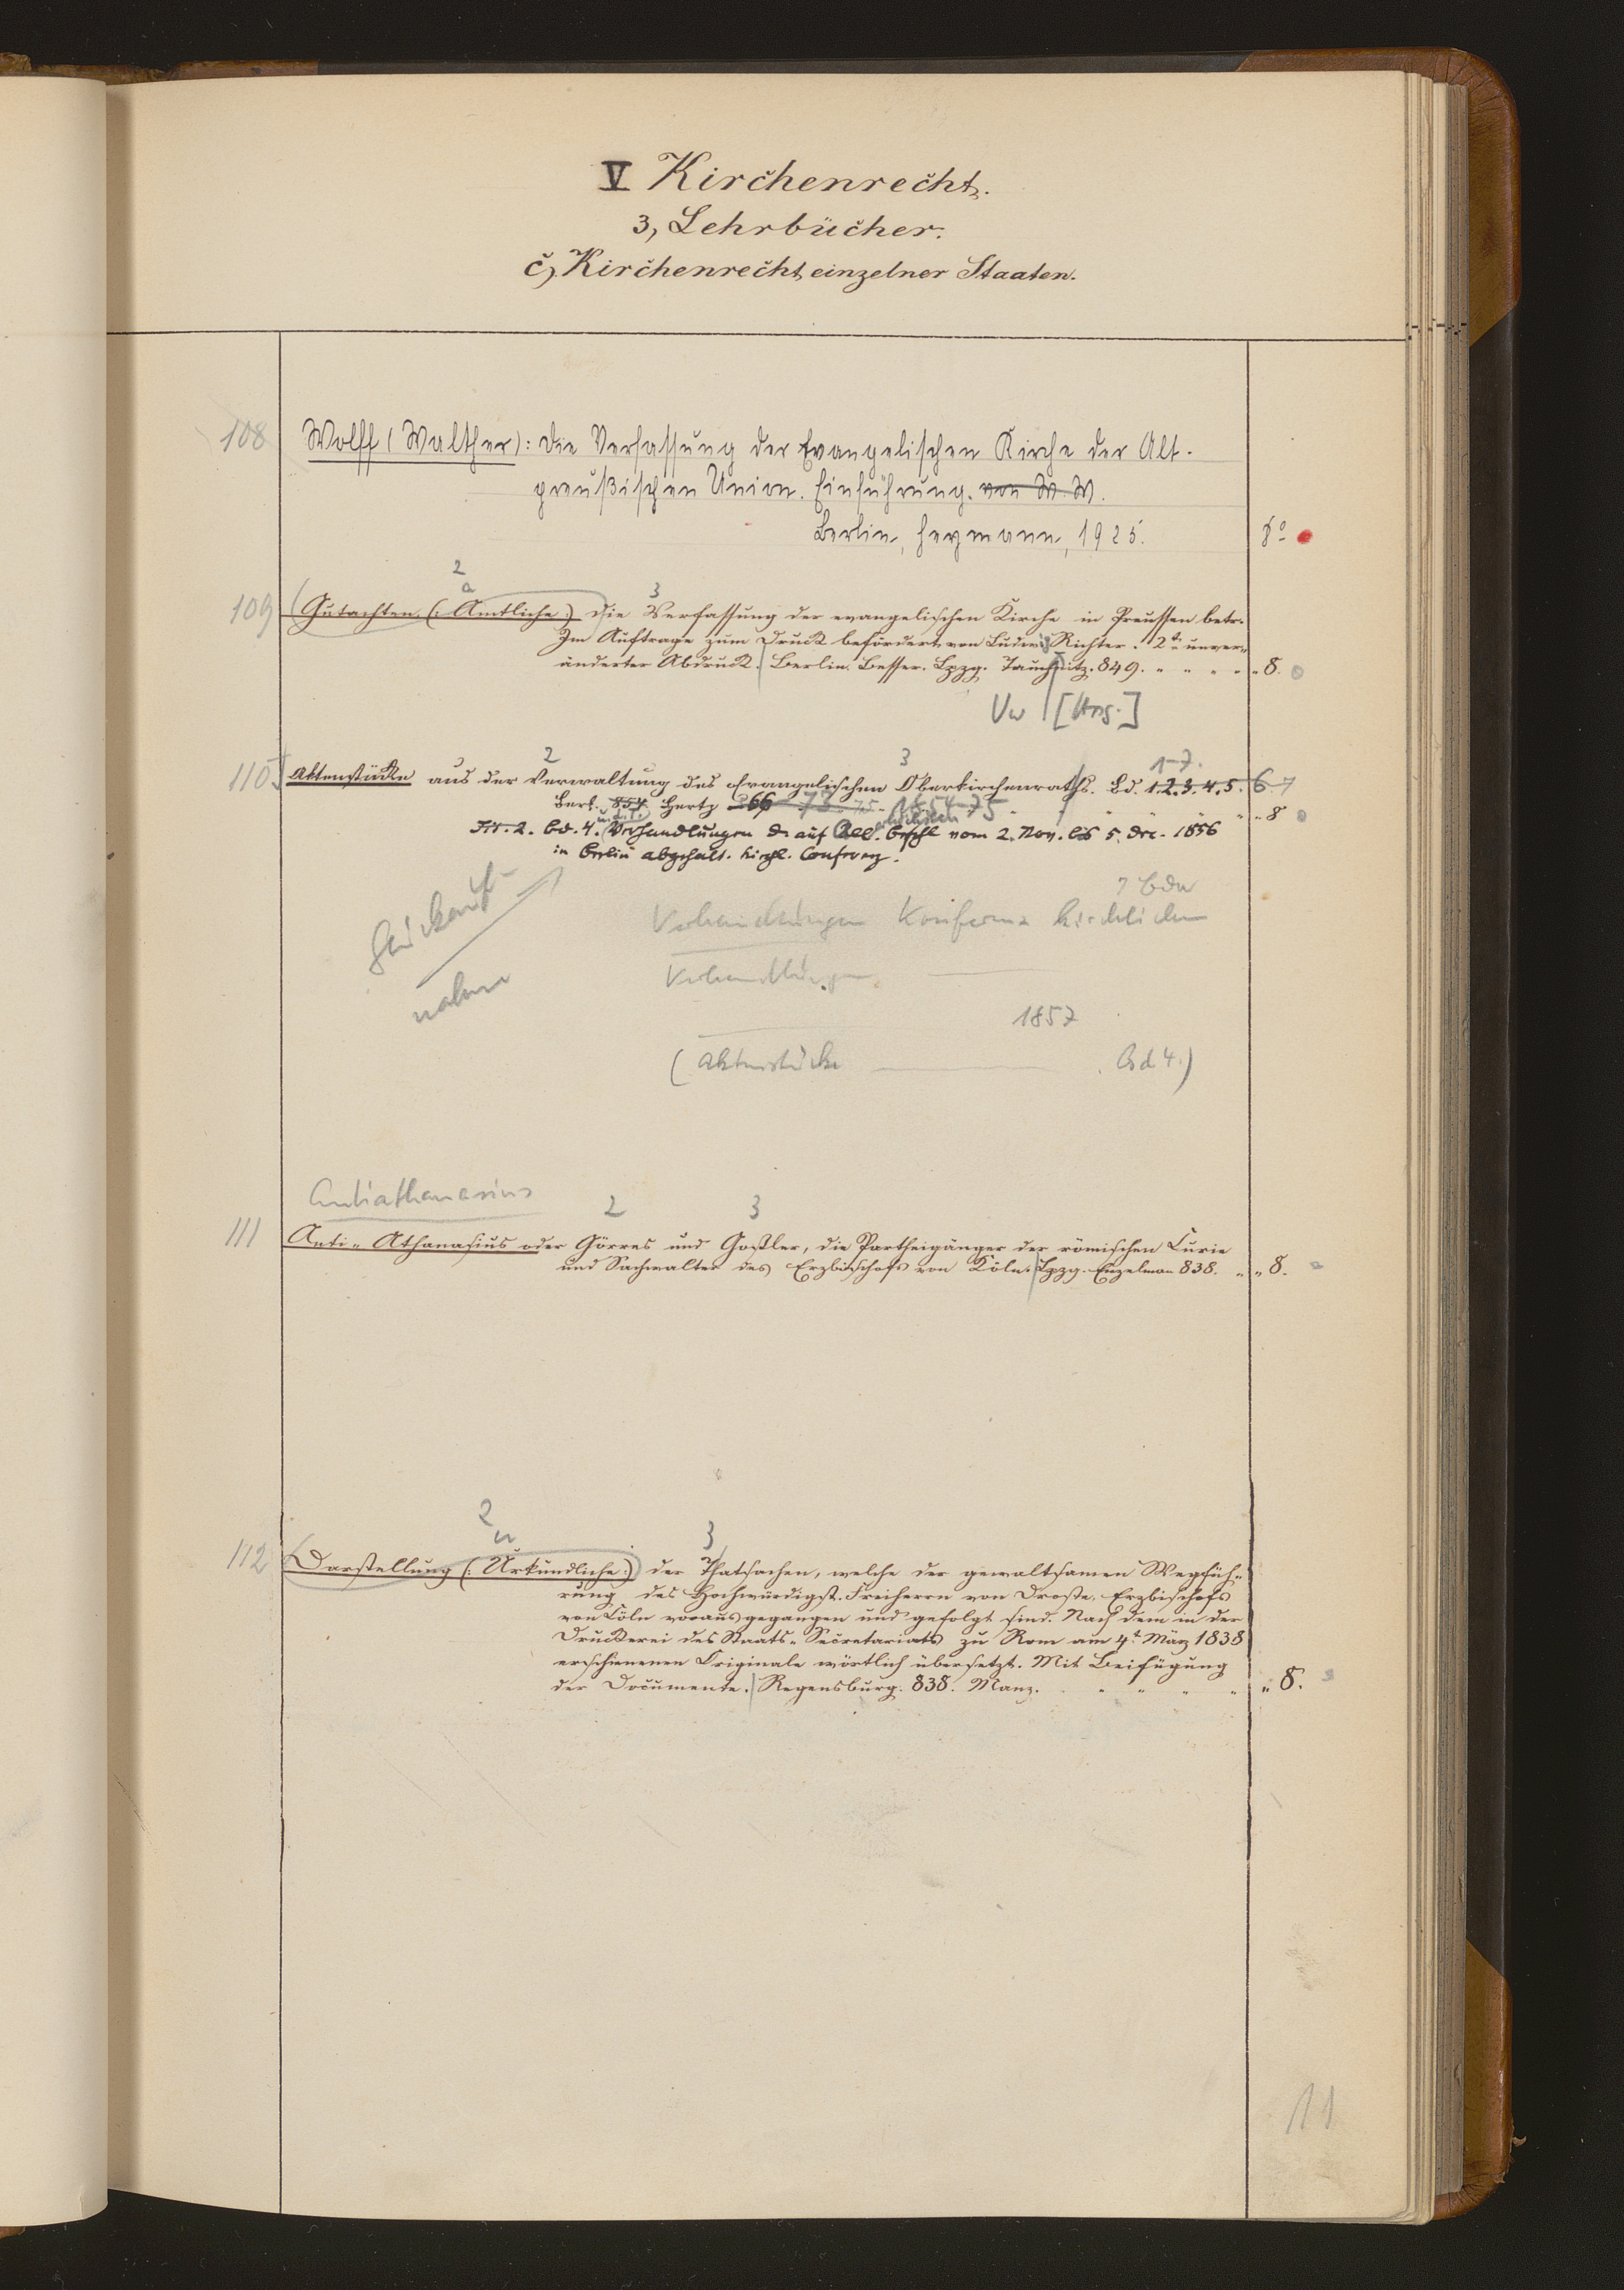 V Kirchenrecht.
3, Lehrbücher.
c, Kirchenrecht einzelner Staaten.
108 Wolff (Walther): Die Verfassung der Evangelischen Kirche der Alt-
preußischen Union. Einführung. von W. W.
Berlin, Heymann, 1925. 8°
2
a 3
109 Gutachten (: Amtliche :) die Verfassung der evangelischen Kirche in Preussen betr.
Im Auftrage zum Druck befördert von Ludwig Richter. 2te unver-
änderter Abdruck. Berlin. Besser. Lpzg. Tauchnitz. 849. " " " " " 8.
Vw [Hrsg.]
2 3 1-7.
110 Aktenstücke aus der Verwaltung des Evangelischen Oberkirchenraths. Bd. 1.2.3.4.5. 6-7
Berl. 854 Hertz 66 73. 75. 1854-75 " " 8
u. d. T. kirchlichen
Tit. 2. Bd. 4. Verhandlungen d. auf All. Befehl vom 2. Nov. bis 5. Dec. 1856
in Berlin abgehalt. kirchl. Conferenz.
7 Bde
Verhandlungen Konferenz kirchlichen
Verhandlungen
1857
(Aktenstücke Bd 4.)
Antiathanasius
2 3
111 Anti-Athanasius oder Görres und Goßler, die Partheigänger der römischen Curie
und Sachwalter des Erzbischofs von Köln. Lpzg. Enzelman 838. " " 8.
2
u 3
112 Darstellung (: Urkundliche :) der Thatsachen, welche der gewaltsamen Wegfüh-
rung des Hochwürdigst. Freiherrn von Droste, Erzbischofs
von Cöln vorausgegangen und gefolgt sind. Nach dem in der
Druckerei des Staats-Secretariats zu Rom am 4t März 1838
erschienenen Originale wörtlich übersetzt. Mit Beifügung
der Documente. Regensburg. 838. Manz. " " " " " 8.
11